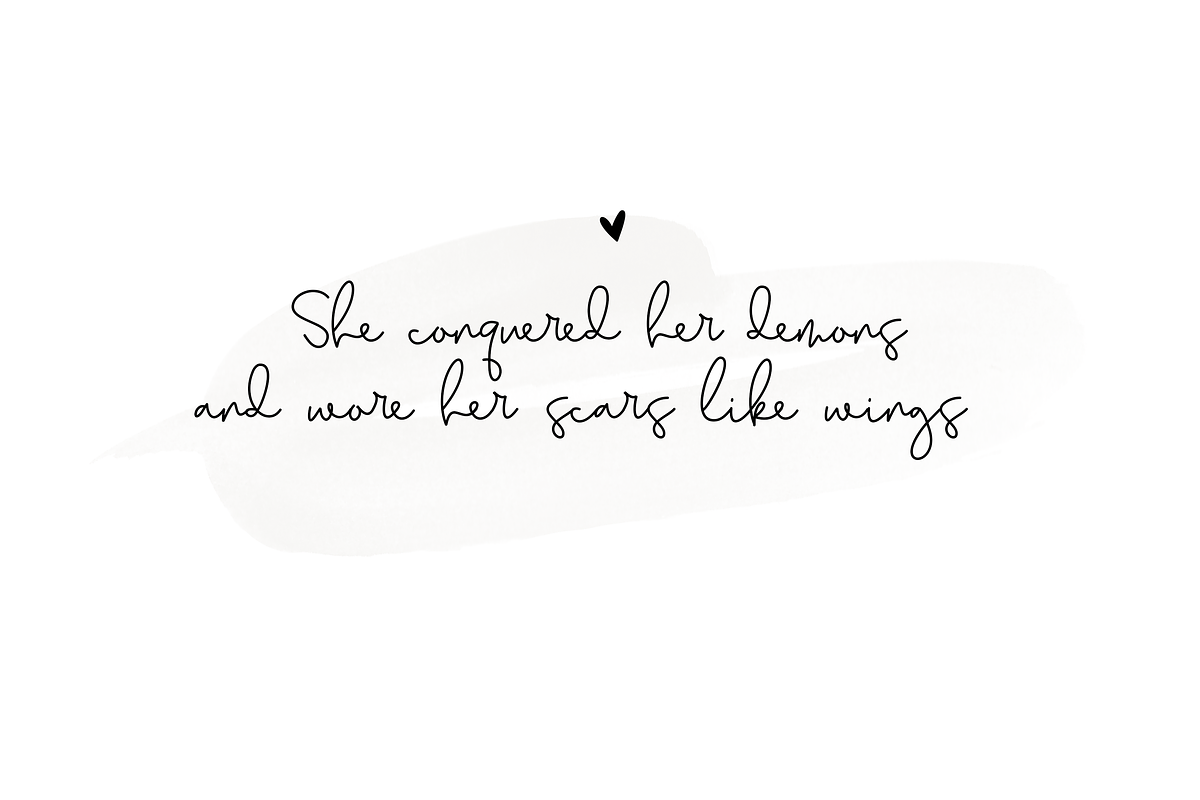 She conquered her demons
and wore her scars like wings